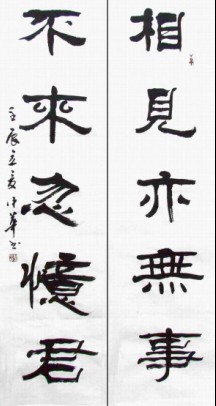 相見亦無事
不來忽憶君
壬辰立夏